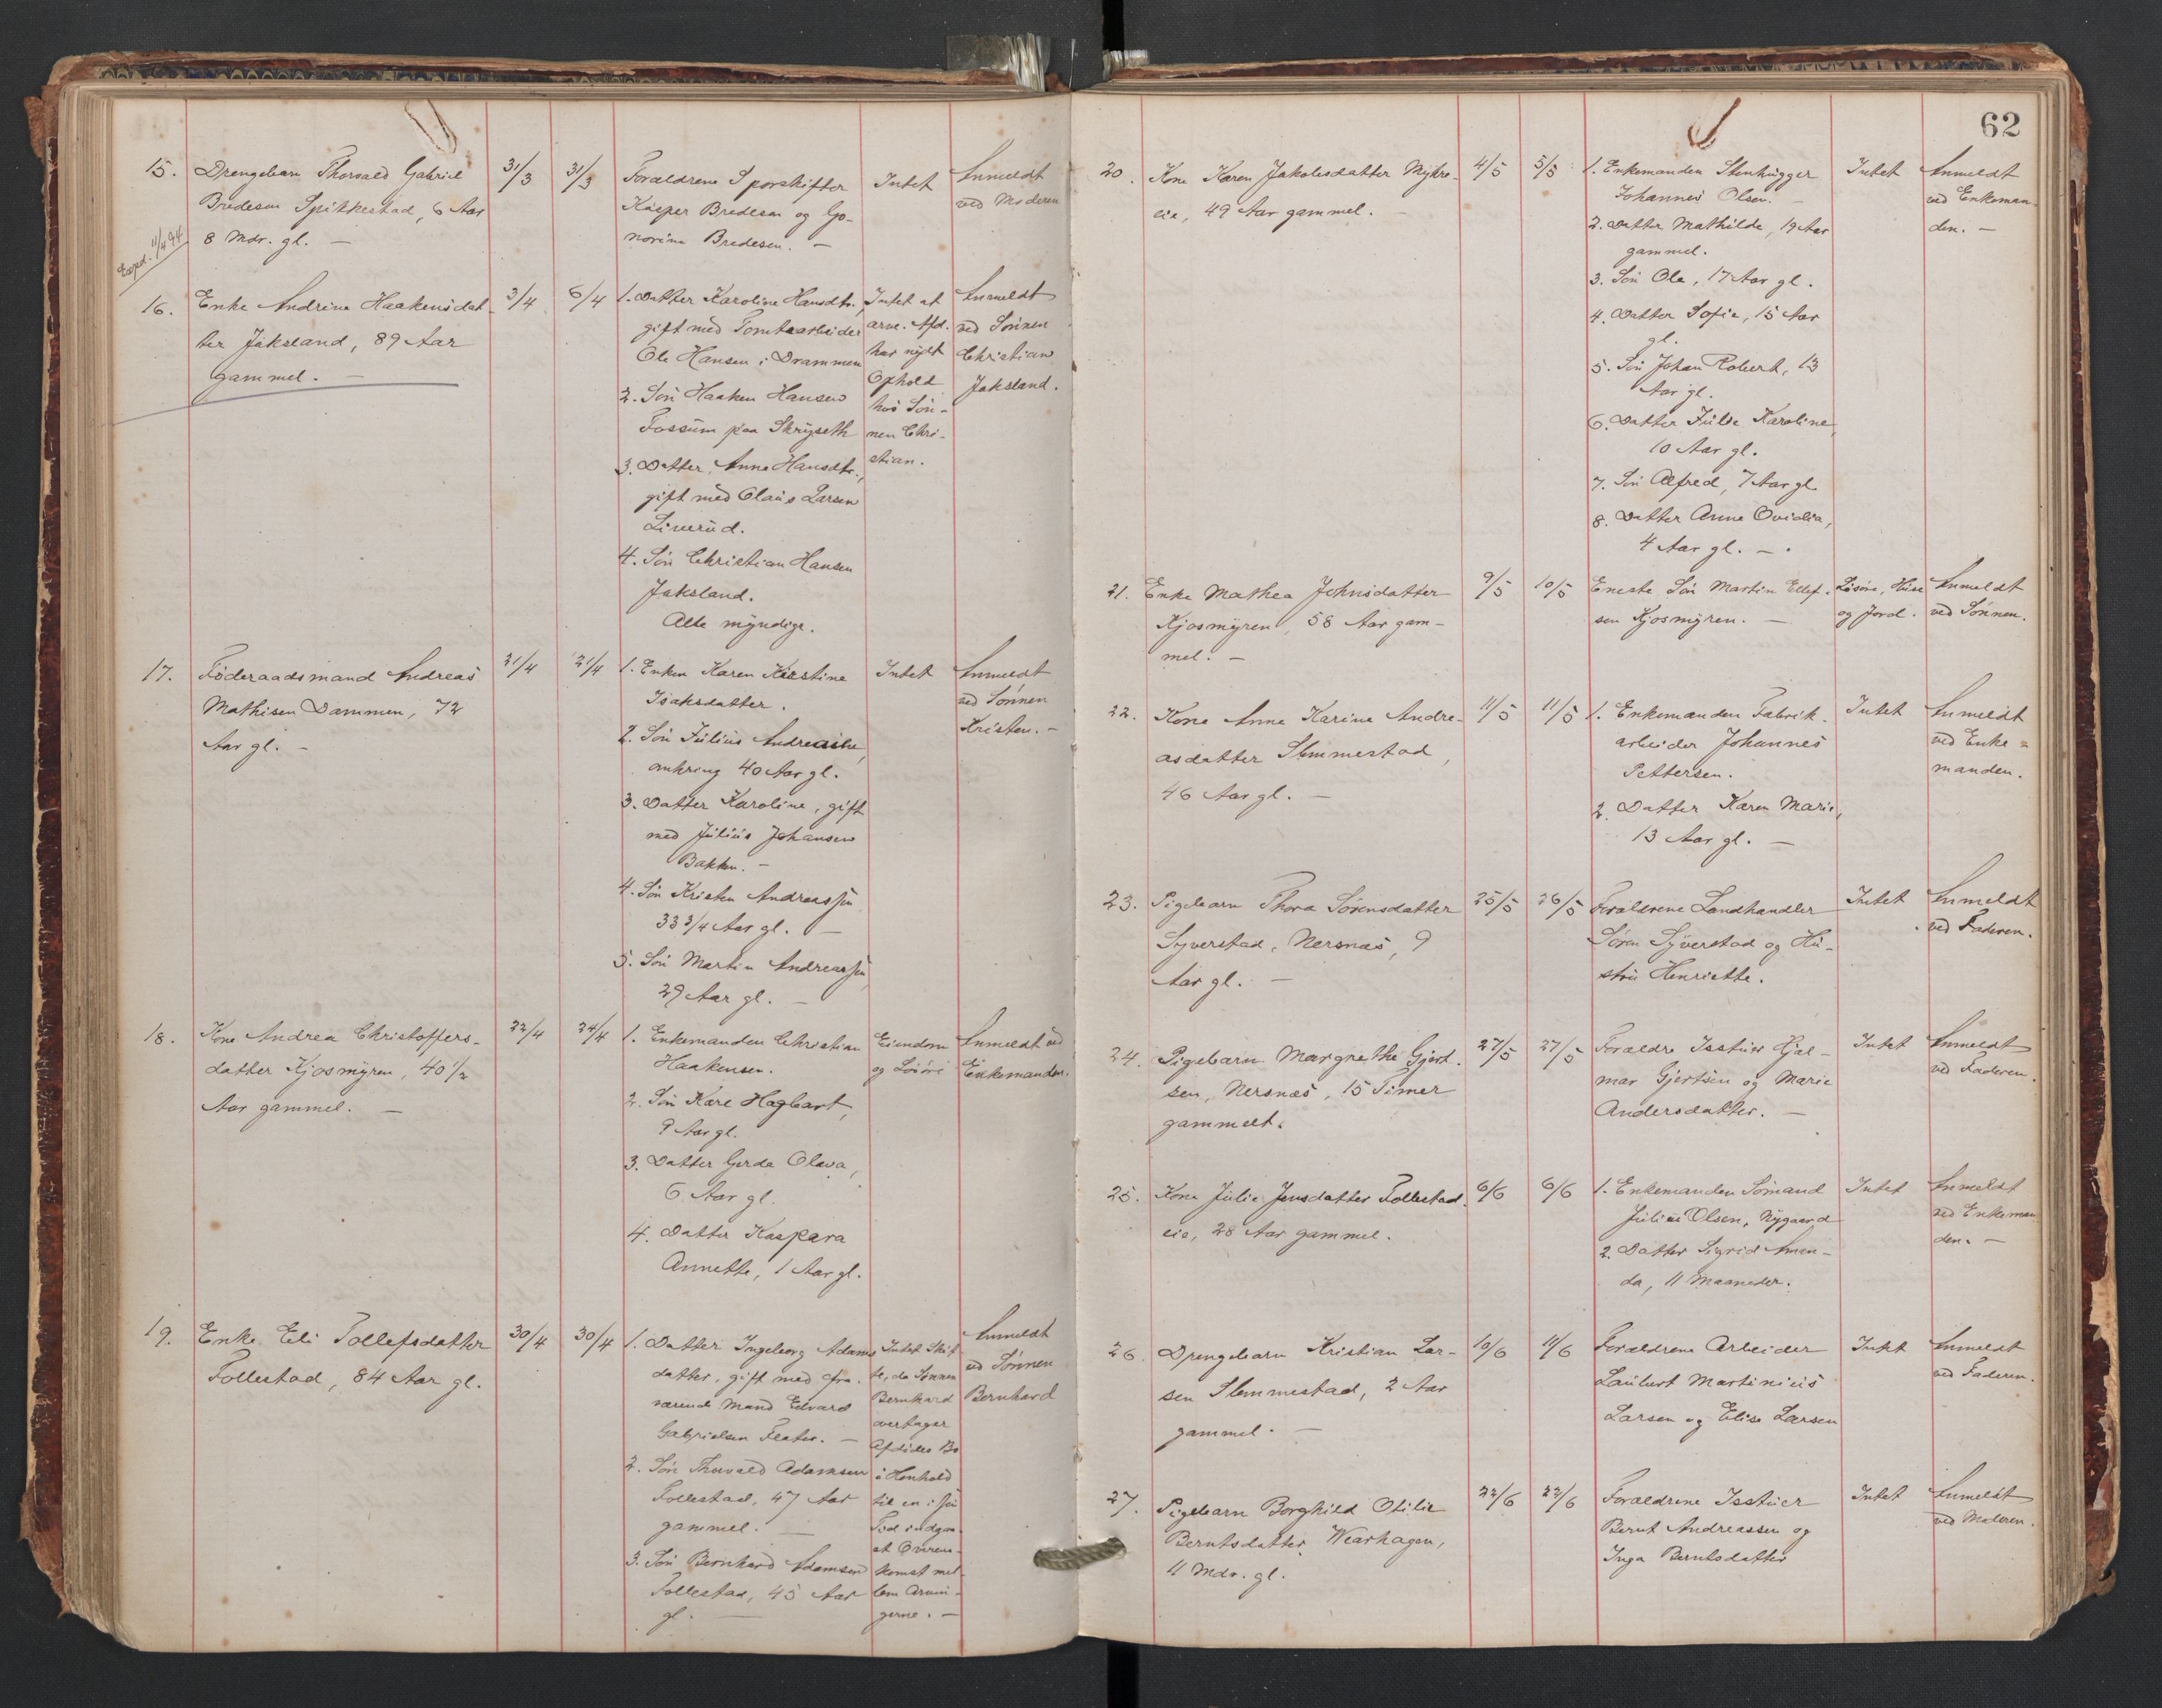 15.
Drengebarn Thorvald Gabriel
Bredesen Spikkestad, 6 Aar
8 Mdr. gl. —
31/3
31/3
Forældrene Sporskifter
Kasper Bredesen og Go-
norine Bredesen. —
Intet
Anmeldt
ved Moderen
Exped. 11/4 94
16.
Enke Andrine Haakensdat-
ter Jaksland, 89 Aar
gammel. —
3/4
6/4
1. Datter Karoline Hansdtr.,
gift med Tomtearbeider
Ole Hansen i Drammen
2. Søn Haaken Hansen
Fossum paa Skryseth
3. Datter Anne Hansdtr.,
gift med Olaus Larsen
Linerud.
4. Søn Christian Hansen
Jaksland.
Alle myndige.
Intet at
arve. Afd.
har nydt
Ophold
hos Søn-
nen Chri-
stian.
Anmeldt
ved Sønnen
Christian
Jaksland.
17.
Föderaadsmand Andreas
Mathisen Dammen, 72
Aar gl. —
21/4
21/4
1. Enken Karen Kirstine
Isaksdatter.
2. Søn Julius Andreassen,
omkring 40 Aar gl.
3. Datter Karoline, gift
med Julius Johansen
Bakken. —
4. Søn Kristen Andreassen
33 3/4 Aar gl. —
5. Søn Martin Andreassen
29 Aar gl. —
Intet
Anmeldt
ved Sønnen
Kristen. —
18.
Kone Andrea Christoffers-
datter Kjosmyren, 40 1/2
Aar gammel. —
22/4
24/4
1. Enkemanden Christian
Haakensen.
2. Søn Kare Hagbart,
9 Aar gl.
3. Datter Gerda Olava,
6 Aar gl.
4. Datter Kaspara
Annette, 1 Aar gl.
Eiendom
og Løsøre
Anmeldt ved
Enkemanden.
19.
Enke Eli Tollefsdatter
Follestad, 84 Aar gl.
30/4
30/4
1. Datter Ingeborg Adams
datter, gift med fra-
værende Mand Edvard
Gabrielsen Flater. —
2. Søn Thorvald Adamsen
Follestad, 47 Aar
gammel. —
3. Søn Bernhard Adamsen
Follestad, 45 Aar
gl. —
Intet Skif
te, da Sønnen
Bernhard
overtager
Afdødes Bo
i Henhold
til en i sin
Tid indgaa-
et Overens-
komst mel-
lem Arvin-
gerne. —
Anmeldt
ved Sønnen
Bernhard
62
20.
Kone Karen Jakobsdatter Myhre-
eie, 49 Aar gammel. —
4/5
5/5
1. Enkemanden Stenhugger
Johannes Olsen. —
2. Datter Mathilde, 19 Aar
gammel.
3. Søn Ole, 17 Aar gl.
4. Datter Sofie, 15 Aar
gl.
5. Søn Johan Robert, 13
Aar gl.
6. Datter Julie Karoline,
10 Aar gl.
7. Søn Alfred, 7 Aar gl.
8. Datter Anne Ovidia,
4 Aar gl. —
Intet
Anmeldt
ved Enkeman-
den. —
21.
Enke Mathea Johnsdatter
Kjosmyren, 58 Aar gam-
mel. —
9/5
10/5
Eneste Søn Martin Ellef-
sen Kjosmyren. —
Løsøre, Huse
og Jord.
Anmeldt
ved Sønnen.
22.
Kone Anne Karine Andre-
asdatter Slemmestad,
46 Aar gl. —
11/5
11/5
1. Enkemanden Fabrik-
arbeider Johannes
Pettersen.
2. Datter Karen Marie,
13 Aar gl. —
Intet
Anmeldt
ved Enke-
manden.
23.
Pigebarn Thora Sørensdatter
Syverstad, Nersnæs, 9
Aar gl. —
25/5
26/5
Forældrene Landhandler
Søren Syverstad og Hu-
stru Henriette.
Intet
Anmeldt
ved Faderen.
24.
Pigebarn Margrethe Gjert-
sen, Nersnæs, 15 Timer
gammelt.
27/5
27/5
Forældre Isstuer Hjal-
mar Gjertsen og Marie
Andersdatter. —
Intet
Anmeldt
ved Faderen.
25.
Kone Julie Jensdatter Follestad-
eie, 28 Aar gammel.
6/6
6/6
1. Enkemanden Sømand
Julius Olsen, Nygaard
2. Datter Sigrid Aman-
da, 11 Maaneder.
Intet
Anmeldt
ved Enkeman
den. —
26.
Drengebarn Kristian Lar-
sen Slemmestad, 2 Aar
gammel. —
10/6
11/6
Forældrene Arbeider
Laulurt Martinius
Larsen og Elise Larsen
Intet
Anmeldt
ved Faderen.
27.
Pigebarn Borghild Otilie
Berntsdatter Wearhagen,
11 Mdr. gl.
22/6
22/6
Forældrene Isstuer
Bernt Andreassen og
Inga Berntsdatter
Intet
Anmeldt
ved Moderen.